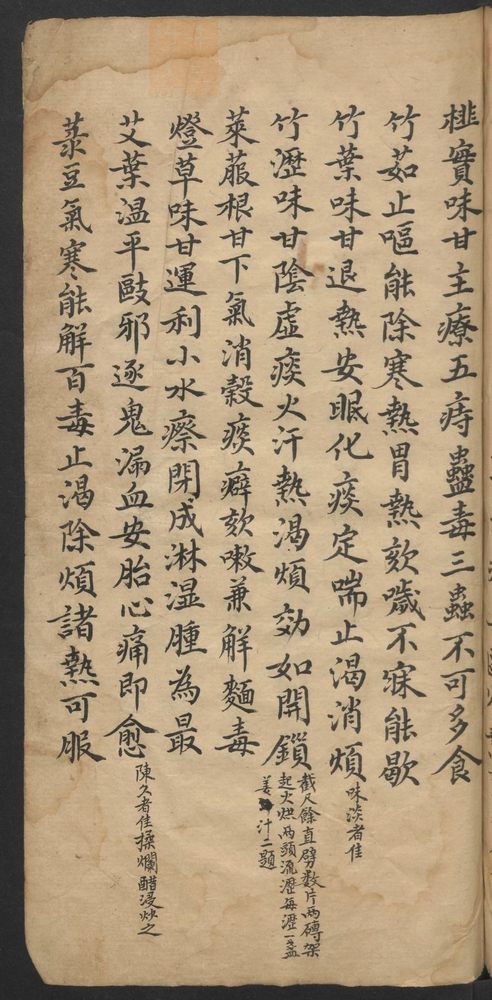 榧實味甘主療五痔蠱毒三蟲不可多食
竹茹止嘔能除寒熱胃熱欬噦不寐能歇
竹葉味甘退熱安眠化痰定喘止渴消煩
味淡者佳
竹瀝味甘陰虛痰火汗熱渴煩効如開鎖
截尺餘直劈数片两磚架
起火烘两頭流瀝每瀝一盞
姜汁二匙
萊菔根甘下氣消穀痰癖欬嗽兼解麵毒
燈草味甘運利小水癃閉成淋湿腫為最
艾葉温平毆邪逐鬼漏血安胎心痛即愈
陳久者佳揉爛醋浸炒之
菉豆氣寒能解百毒止渴除煩諸熱可服